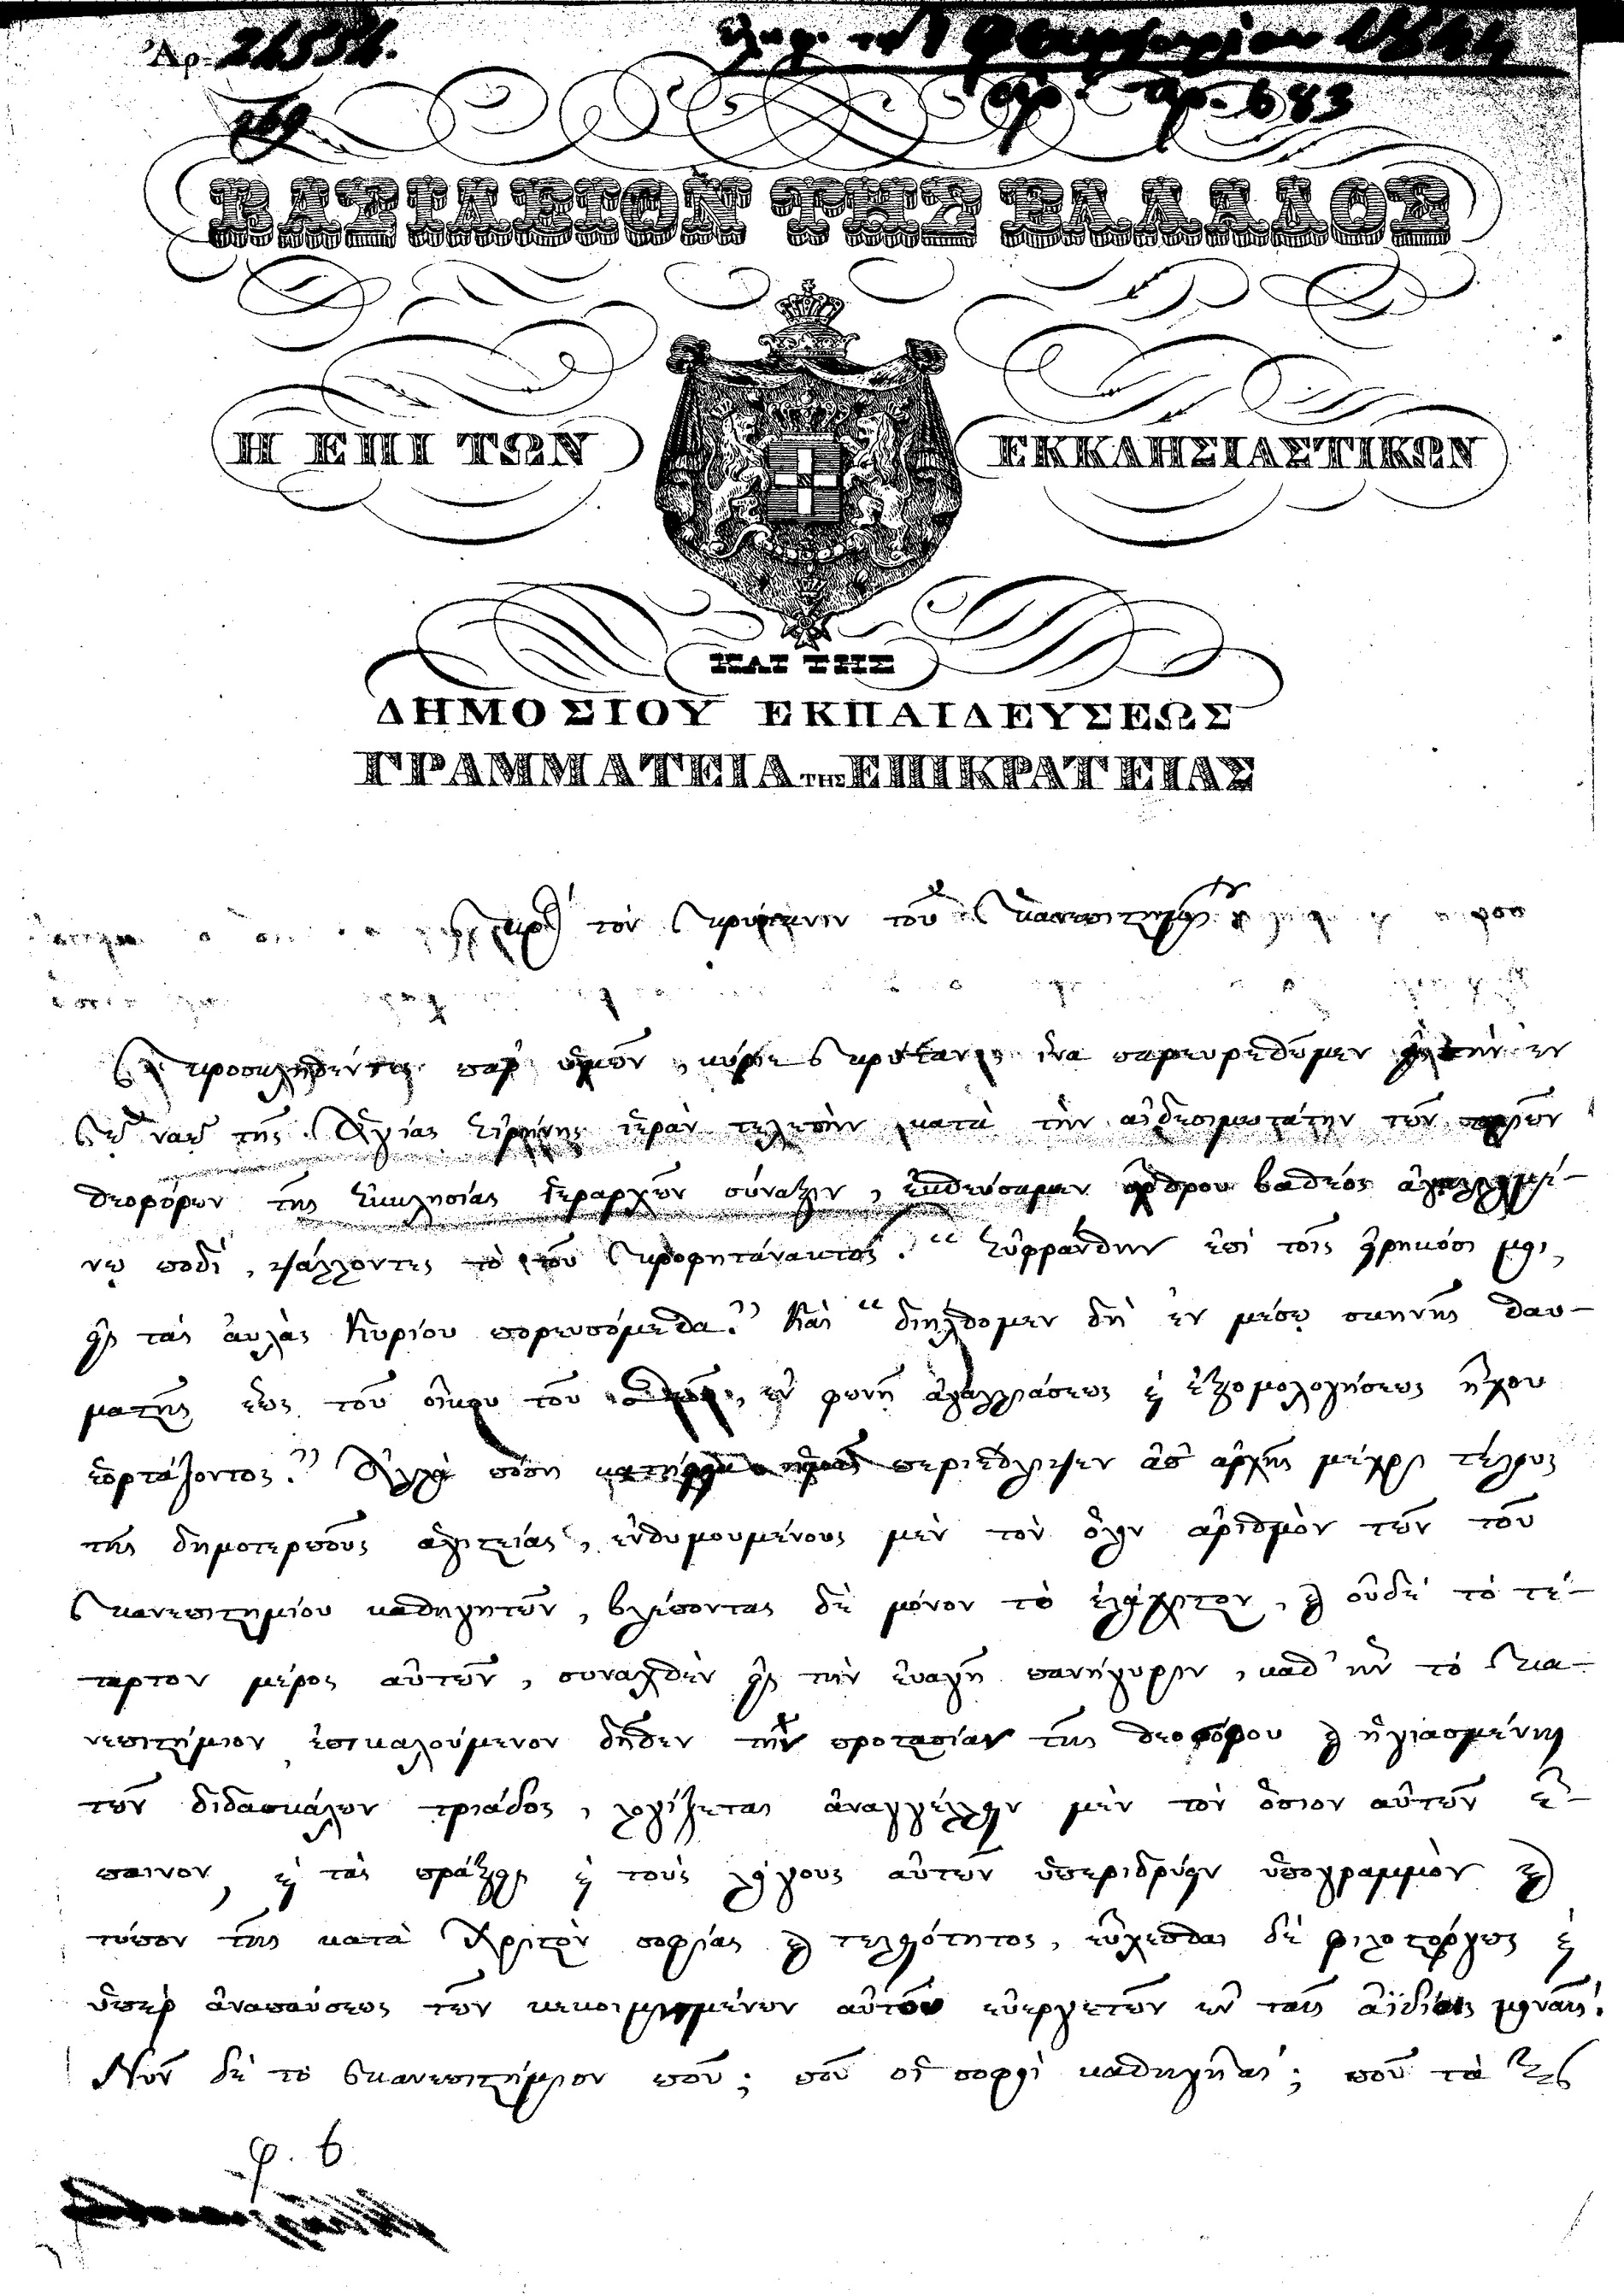 Ἀρ. 24554.
ἐλήφ. τὴν 1 Φεβρουαρίου 1844
ἀρ. 683
ΒΑΣΙΛΕΙΟΝ ΤΗΣ ΕΛΛΑΔΟΣ
Η ΕΠΙ ΤΩΝ ΕΚΚΛΗΣΙΑΣΤΙΚΩΝ
ΚΑΙ ΤΗΣ
ΔΗΜΟΣΙΟΥ ΕΚΠΑΙΔΕΥΣΕΩΣ
ΓΡΑΜΜΑΤΕΙΑ ΤΗΣ ΕΠΙΚΡΑΤΕΙΑΣ
Πρὸς τὸν Πρύτανιν τοῦ Πανεπιστημίου
Προσκληθέντες παρ' ὑμῶν, κύριε Πρύτανις ἵνα παρευρεθῶμεν εἰς τὴν ἐν
τῷ ναῷ τῆς Ἁγίας Εἰρήνης ἱερὰν τελετὴν κατὰ τὴν αἰδεσιμωτάτην τῶν σοφῶν
θεοφόρων τῆς Ἐκκλησίας Ἱεραρχῶν σύναξιν, ἐσπεύσαμεν ὄρθρου βαθέος ἀγαλλομέ-
νῳ ποδί, ψάλλοντες τὸ τοῦ Προφητάνακτος. "Εὐφράνθην ἐπὶ τοῖς εἰρηκόσι μοι,
εἰς τὰς αὐλὰς Κυρίου πορευσόμεθα." Καὶ "διήλθομεν δὴ ἐν μέσῳ σκηνῆς θαυ-
μαστῆς ἕως τοῦ οἴκου τοῦ Θεοῦ, ἐν φωνῇ ἀγαλλιάσεως καὶ ἐξομολογήσεως ἤχου
ἑορτάζοντος." Ἀλλὰ πόση κατήφεια ἡμᾶς περιέθλιψεν ἀπ' ἀρχῆς μέχρι τέλους
τῆς δημοτερποῦς ἁγιστείας, ἐνθυμουμένους μὲν τὸν ὅλον ἀριθμὸν τῶν τοῦ
Πανεπιστημίου καθηγητῶν, βλέποντας δὲ μόνον τὸ ἐλάχιστον, καὶ οὐδὲ τὸ τέ-
ταρτον μέρος αὐτῶν, συναχθὲν εἰς τὴν εὐαγῆ πανήγυριν, καθ' ἣν τὸ Πα-
νεπιστήμιον ἐπικαλούμενον δῆθεν τὴν προστασίαν τῆς θεοφόρου καὶ ἡγιασμένης
τῶν διδασκάλων τριάδος, λογίζεται ἀναγγέλλειν μὲν τὸν ὅσιον αὐτῶν ἔ-
παινον, καὶ τὰς πράξεις καὶ τοὺς λόγους αὐτῶν ὑπεριδρύειν ὑπογραμμὸν καὶ
τύπον τῆς κατὰ Χριστὸν σοφίας καὶ τελειότητος, εὔχεσθαι δὲ φιλοστόργως καὶ
ὑπὲρ ἀναπαύσεως τῶν κεκοιμημένων αὐτοῦ εὐεργετῶν ἐν ταῖς ἀϊδίοις μοναῖς.
Νῦν δὲ τὸ Πανεπιστήμιον ποῦ; ποῦ οἱ σοφοὶ καθηγηταί; ποῦ τὰ
φ. 6